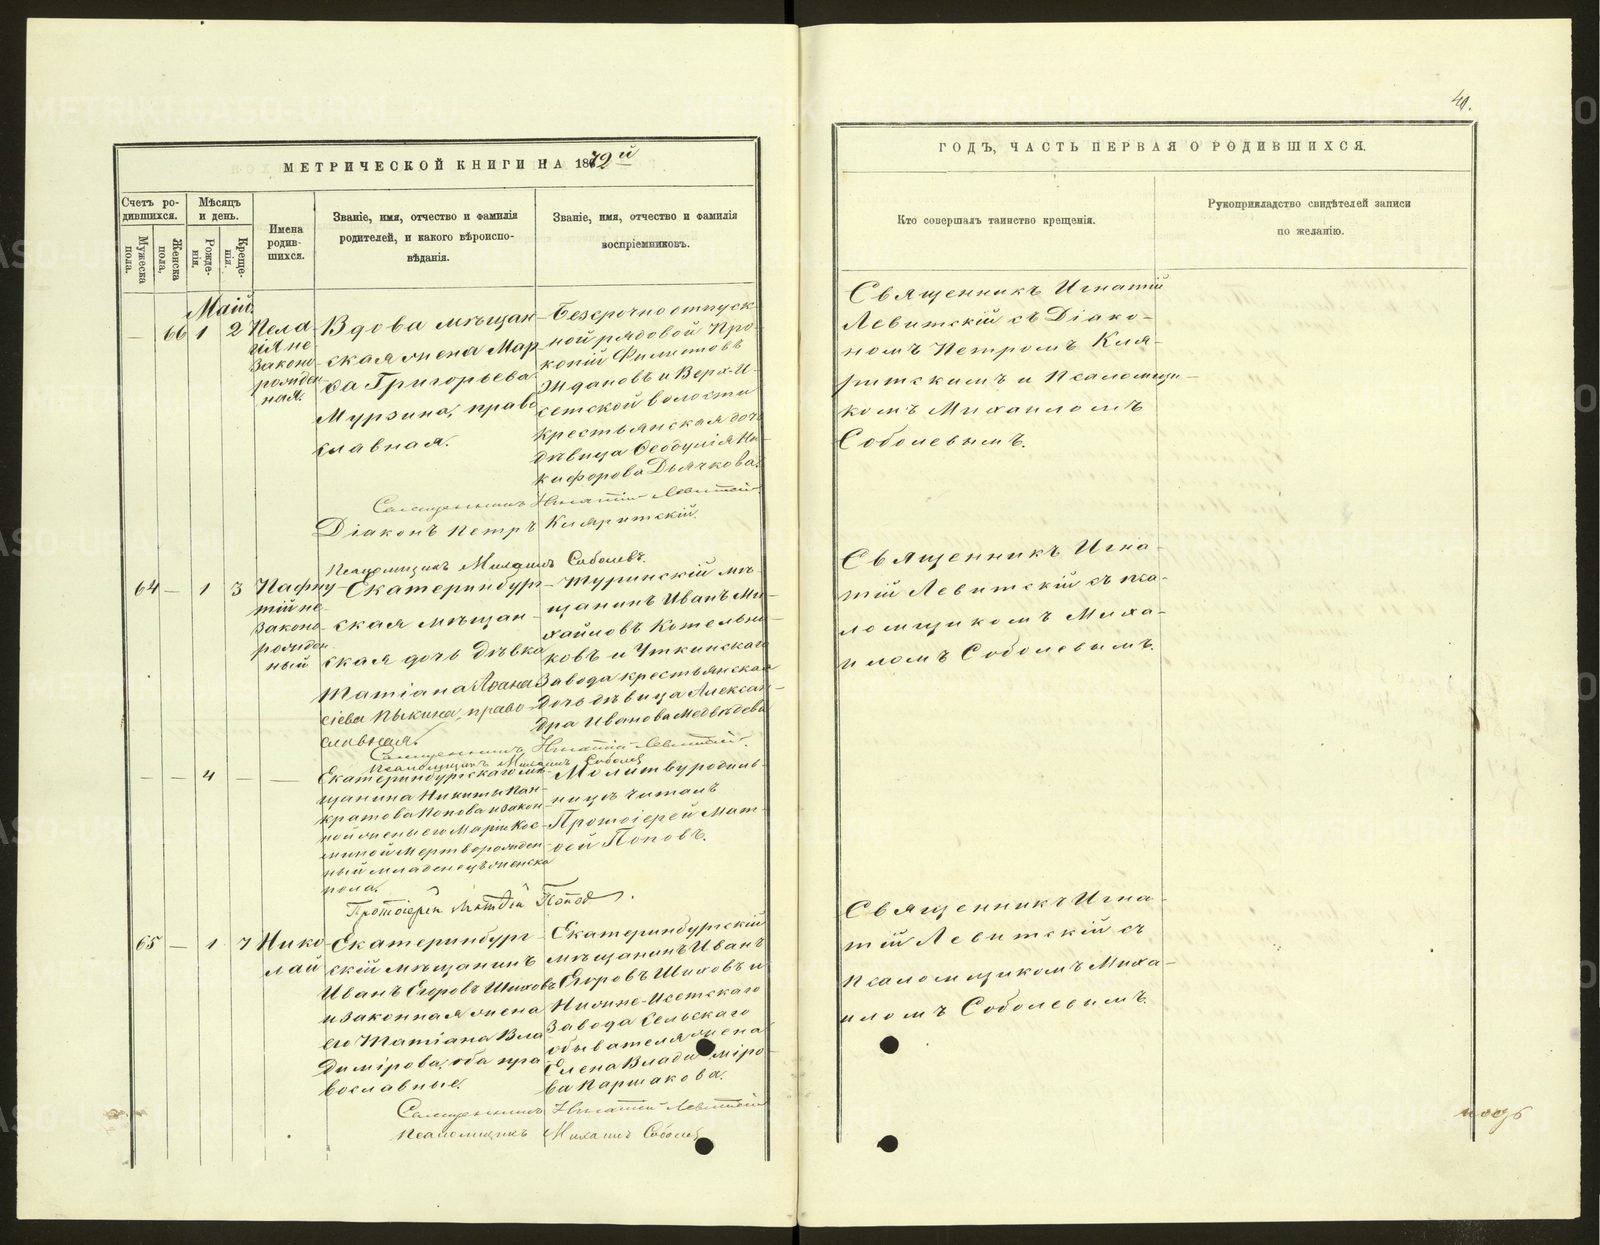 40.
МЕТРИЧЕСКОЙ КНИГИ НА 1872й
Счетъ ро-
дившихся.
Мужеска
пола.
Женска
пола,
Мѣсяцъ
и день.
Рожде-
нія.
Креще-
нія.
Имена
родив-
шихся.
Званіе, имя, отчество и фамилія
родителей, и какого вѣроиспо-
вѣданія.
Званіе, имя, отчество и фамилія
воспріемниковъ.
Маій.
— 66 1 2
Пела-
гія не
законо-
рожден-
ная.
Вдова мѣщан-
ская жена Мар
ѳа Григорьева
Мурзина, право
славная.
Безсрочноотпуск
ной рядовой Про-
копій Филиповъ
Ждановъ и Верх-И-
сетской волости
крестьянская дочь
дѣвица Ѳеодулія Ни-
кифорова Дьячкова.
Священникъ Игнатій Левитскій
Діаконъ Петръ Кляритскій.
Псаломщикъ Михаилъ Соболевъ.
64 — 1 3
Пафну-
тій не
законо-
рожден
ный
Екатеринбург-
ская мѣщан-
ская дочь дѣвка
Татіана Аѳана
сіева Пыкина, право
славная.
Туринскій мѣ-
щанинъ Иванъ Ми-
хайловъ Котельни-
ковъ и Уткинскаго
завода крестьянская
дочь дѣвица Алексан-
дра Иванова Медвѣдева
Священникъ Игнатій Левитскій.
Псаломщикъ Михаилъ Соболевъ
— — 4 — —
Екатеринбургскаго мѣ-
щанина Никиты Пан-
кратова Попова и закон-
ной жены его Маріи Кос-
миной мертворожден-
ный младенецъ женска
пола.
Молитву родиль-
ницѣ читалъ
Протоіерей Мат-
ѳей Поповъ.
Протоіерей Матѳей Попов.
65 — 1 7
Нико
лай
Екатеринбург-
скій мѣщанинъ
Иванъ Егоровъ Шиховъ
и законная жена
его Татіана Вла
димірова, оба пра
вославные.
Екатеринбургскій
мѣщанинъ Иванъ
Егоровъ Шиховъ и
Нижне-Исетскаго
завода сельскаго
обывателя жена
Елена Владиміро-
ва Паршакова.
Священникъ Игнатій Левитскій
Псаломщикъ Михаилъ Соболевъ
ГОДЪ, ЧАСТЬ ПЕРВАЯ О РОДИВШИХСЯ.
Кто совершалъ таинство крещенія.
Рукоприкладство свидѣтелей записи
по желанію.
Священникъ Игнатій
Левитскій съ Діако-
номъ Петромъ Кля-
ритскимъ и Псаломщи-
комъ Михаиломъ
Соболевымъ.
Священникъ Игна-
тій Левитскій съ пса-
ломщикомъ Миха-
иломъ Соболевымъ.
Священникъ Игна-
тій Левитскій съ
псаломщикомъ Миха-
иломъ Соболевымъ.